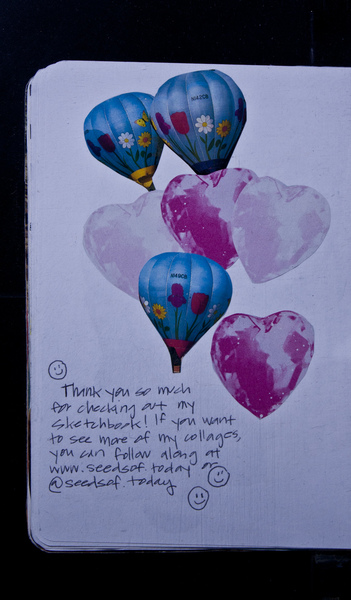 N1420B
N1420B
Thank you so much
for checking out my
sketchbook! If you want
to see more of my collages,
you can follow along at
www.seedsof.today or
@seedsof.today